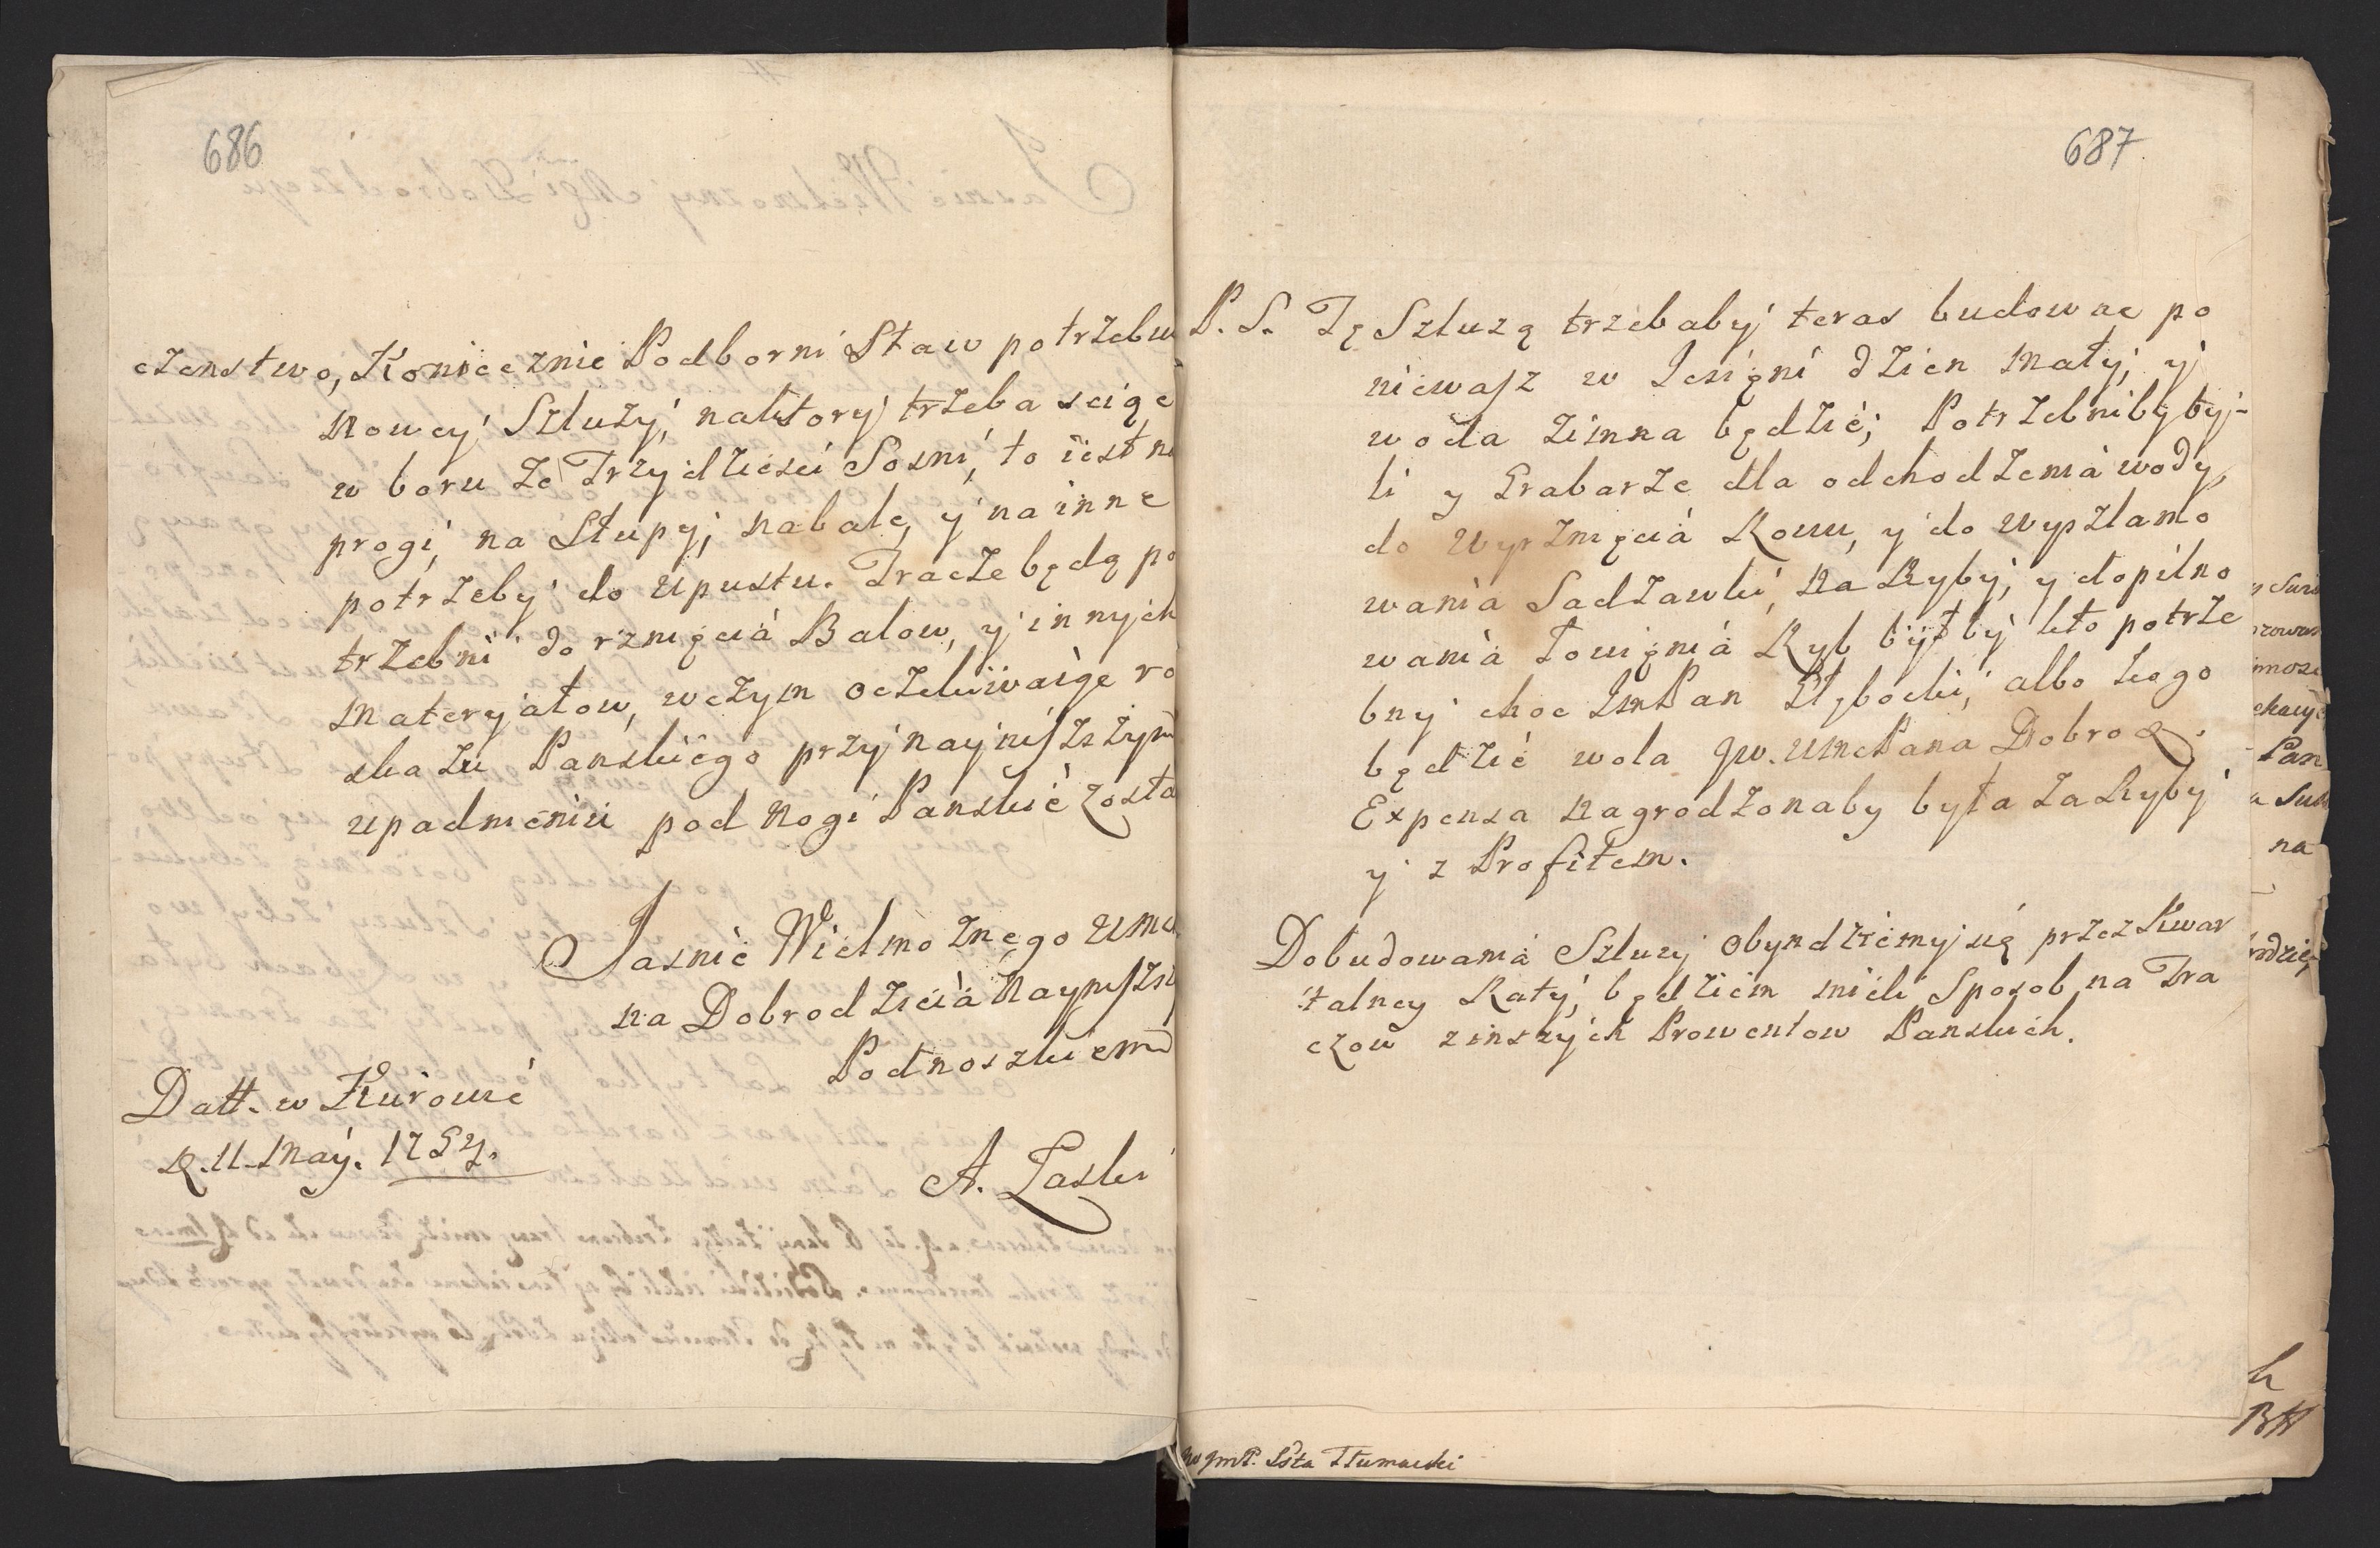 686
czenstwo, Koniecznie Podborni Staw potrzebu
Nowey Szluzy, naktory trzeba sciąc
w boru ze Trzydziesci Sosni, to iest na
progi, na Słupy, nabale, y na inne
potrzeby do upustu. Tracze będą po
trzebni do rznięcia Balow, y innych
materyałow, wczym oczekiwaiąc ro
skazu Panskiego przy nayniszszym
upadnieniu pod Nogi Panskie zosta
Jasnie Wielmoznego Umc
na Dobrodzieia Nayniszsz
Podnoszkiem
Datt. w Kurowie
d. 11. May. 1754.
A. Laski
687
P. S. Tę Szluzą trzebaby teras budowac po
niewasz w Iesięni dzien mały, y
woda zimna będzie; Potrzebniby by-
li y Grabarze dla odchodzenia wody,
do wyrznięcia Rowu, y do wyszlamo
wania Sadzawki, na Ryby, y dopilno
wania Łowięnia Ryb byłby kto potrze
bny choc ImPan Głębocki, albo kogo
będzie wola Jw. UmcPana Dobrodz.
Expensa nagrodzonaby była za Ryby
y z Profitem.
Dobudowania Szluzy obyndziemy się przez Kwar
talney Raty, będziem mieli Sposob na Tra
czow zinszych Prowentow Panskich.
Pan
na
JmP. Ssta Tłumacki